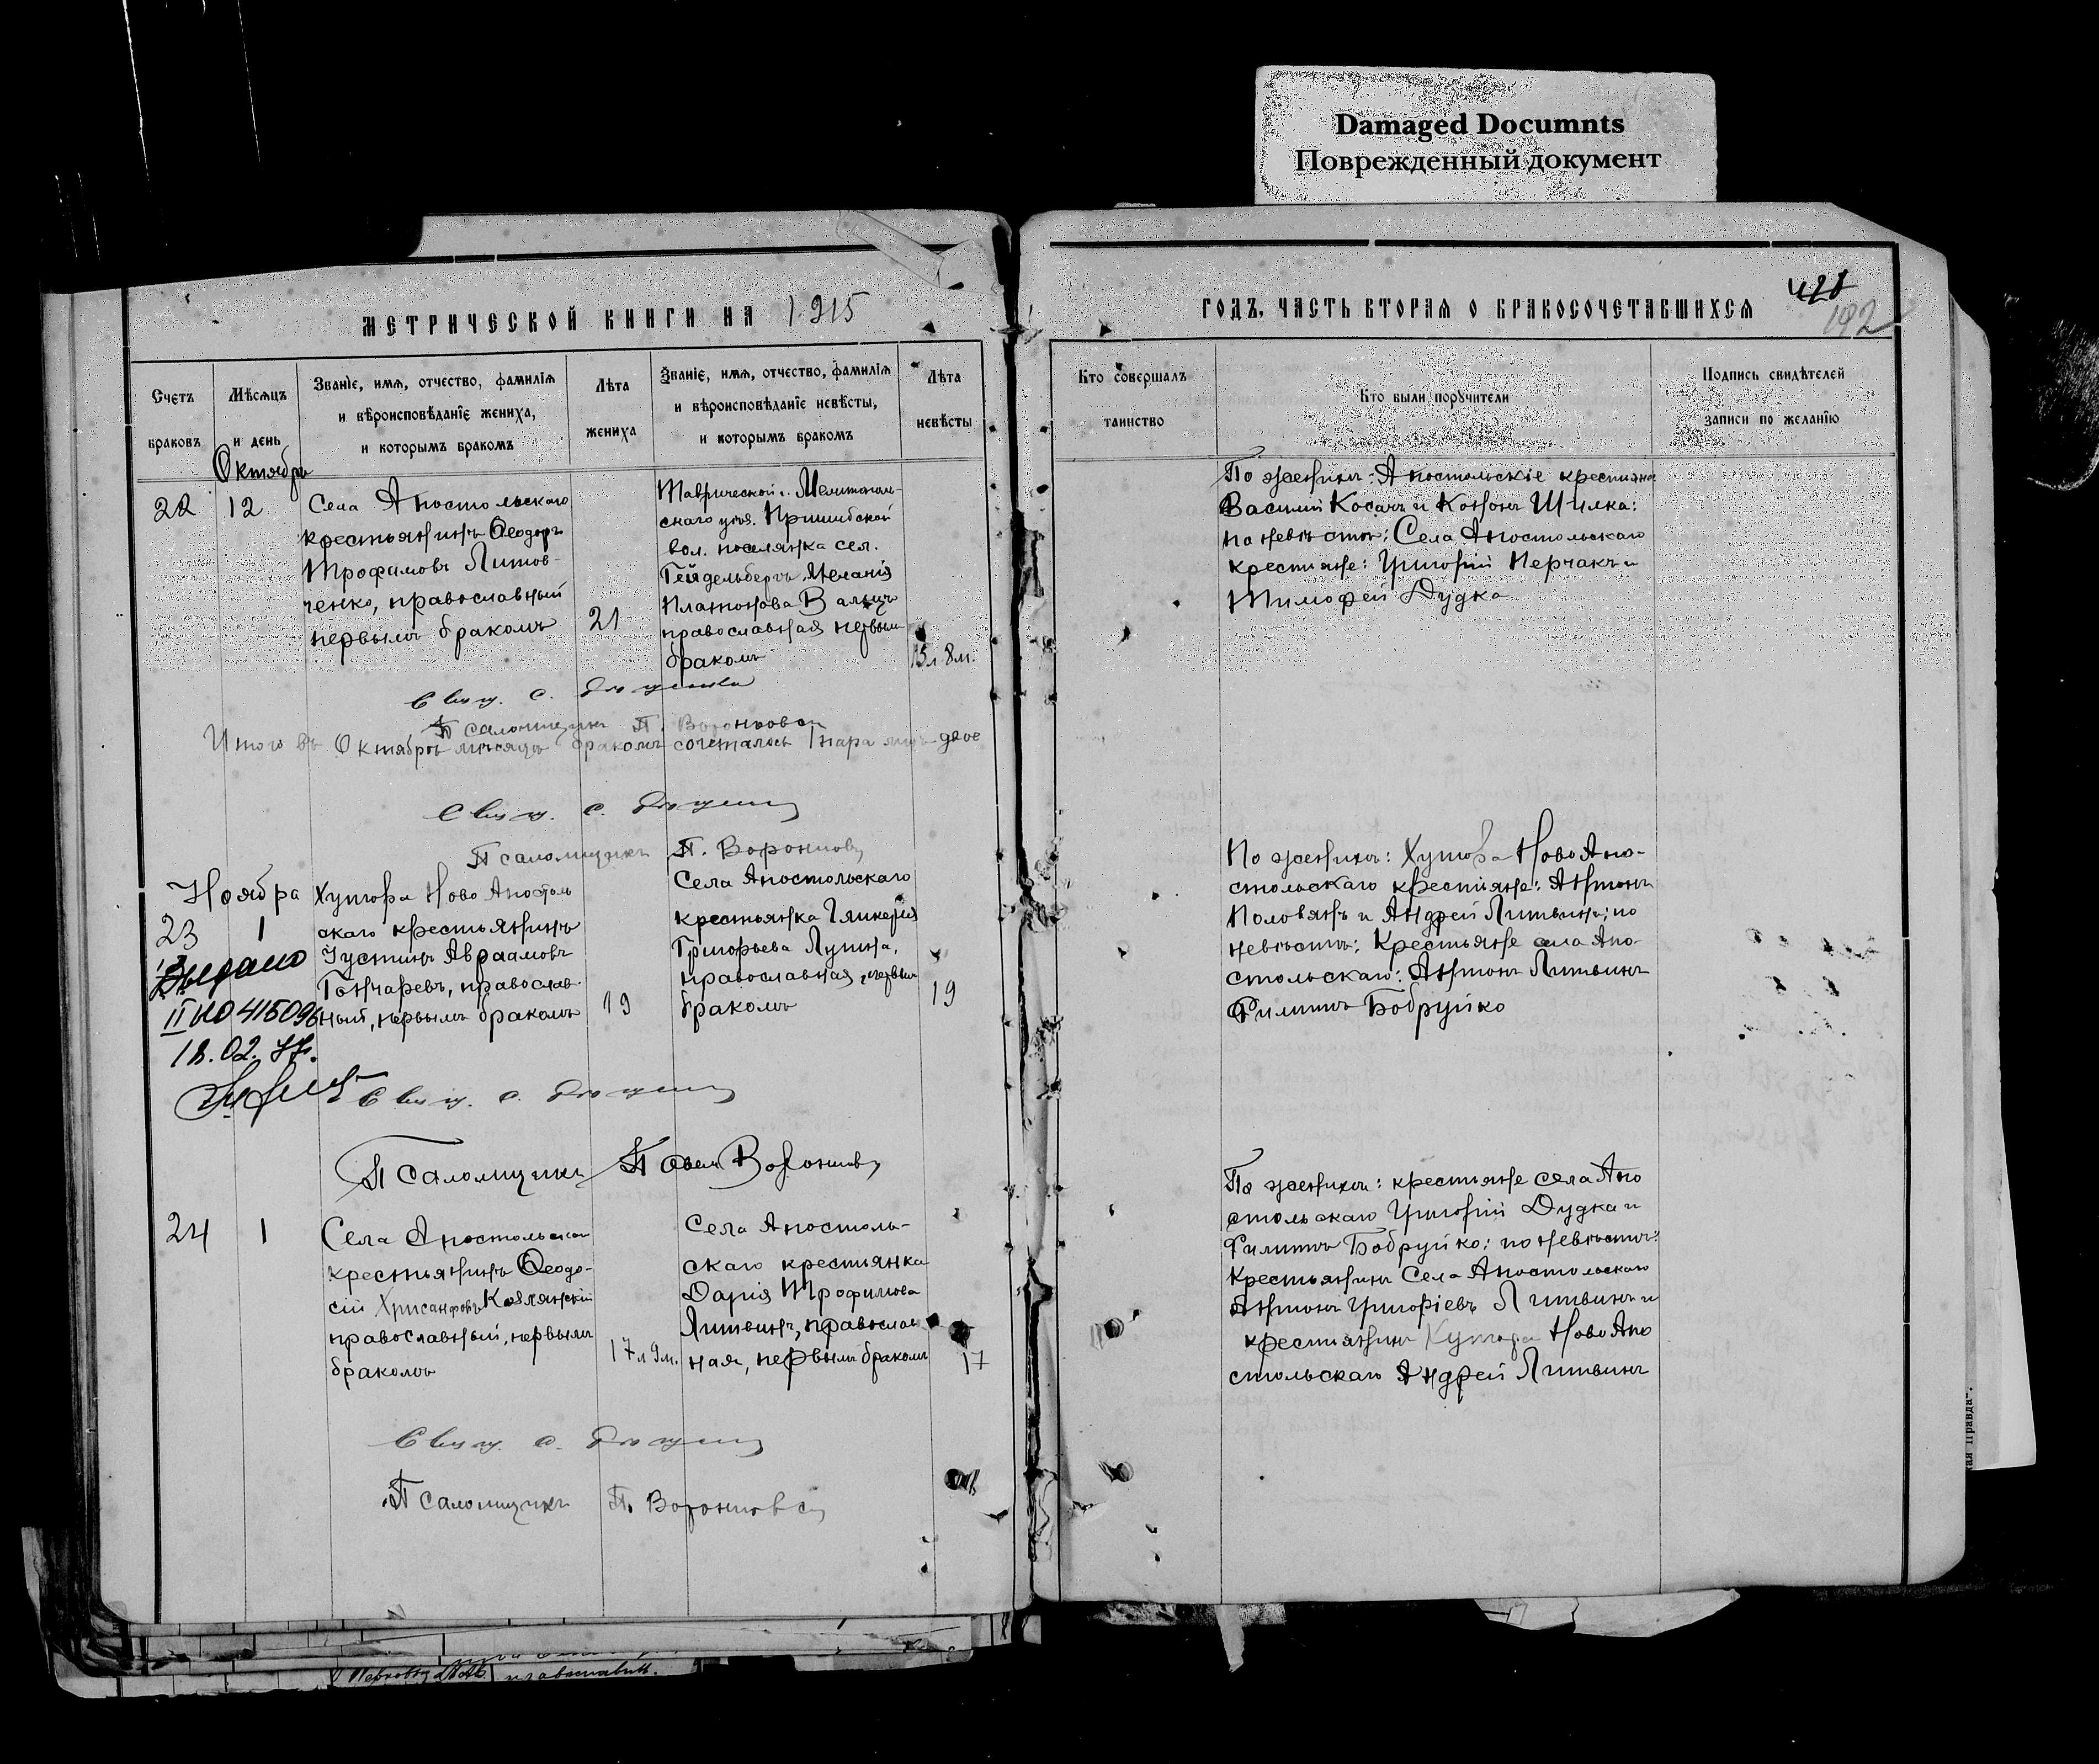 Damaged Documnts
Поврежденный документ
МЕТРИЧЕСКОЙ КНИГИ НА 1915
ГОДЪ, ЧАСТЬ ВТОРАЯ О БРАКОСОЧЕТАВШИХСЯ
192
Счетъ браковъ
Мѣсяцъ и день
Званіе, имя, отчество, фамилія
и вѣроисповѣданіе жениха,
и которымъ бракомъ
Лѣта жениха
Званіе, имя, отчество, фамилія
и вѣроисповѣданіе невѣсты,
и которымъ бракомъ
Лѣта невѣсты
Кто совершалъ
таинство
Кто были поручители
Подпись свидѣтелей
записи по желанію
Октябрь
22
12
Села Апостольскаго
крестьянинъ Ѳеодоръ
Трофимовъ Литов-
ченко, православный
первымъ бракомъ
21
Таврической г. Мелитополь-
скаго уѣз. Пришибской
вол. поселянка сел.
Гейдельбергъ Меланія
Платонова Вальцъ
православная первым
бракомъ
15 л. 8 м.
По женихѣ: Апостольскіе крестьяне
Василій Косачъ и Кононъ Шилка:
по невѣстѣ: Села Апостольскаго
крестьяне: Григорій Перчакъ и
Тимофей Дудка
Свящ. с.
Псаломщикъ П. Воронцовъ
Итого въ Октябрѣ мѣсяцѣ бракомъ сочеталось 1 пара лицъ двое
Свящ. с.
Псаломщикъ П. Воронцовъ
Ноября
23
1
Выдано
II ЫО 415096
18.02.77.
Хутора Ново Апостоль
скаго крестьянинъ
Іустинъ Авраамовъ
Гончаревъ, православ-
ный, первымъ бракомъ
19
Села Апостольскаго
крестьянка Гликерія
Григорьева Лупина,
православная, первым
бракомъ
19
По женихѣ: Хутора Ново Апо-
стольскаго крестьяне: Антонъ
Половянъ и Андрей Литвинъ; по
невѣстѣ: Крестьяне села Апо-
стольскаго: Антонъ Литвинъ
Филиппъ Бобруйко
Свящ. с.
Псаломщикъ Павел Воронцовъ
24
1
Села Апостольскаго
крестьянинъ Ѳеодо-
сій Хрисанфовъ Козлянскій
православный, первымъ
бракомъ
17 л 9 м.
Села Апостоль-
скаго крестьянка
Дарія Трофимова
Литвинъ, православ
ная, первымъ бракомъ
17
По женихѣ: крестьяне села Апо
стольскаго Григорій Дудка и
Филиппъ Бобруйко: по невѣстѣ:
Крестьянинъ Села Апостольскаго
Антонъ Григоріевъ Литвинъ и
крестьянинъ Хутора Ново Апо
стольскаго Андрей Литвинъ
Свящ. с.
Псаломщикъ П. Воронцовъ